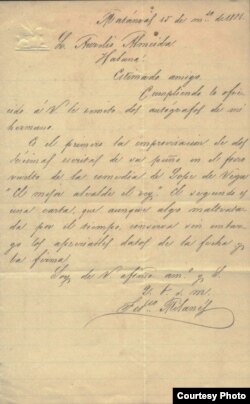 Matanzas 15 de mzo de 1881
Sr. Aurelio Almeida
Habana.
Estimado amigo:
Cumpliendo lo ofre-
cido á V. le remito dos autógrafos de mi
hermano.
Es el primero la improvisacion de dos
décimas escritas de su puño en el forro
vuelto de la comedia de Lope de Vega
"El mejor alcalde el rey". El segundo es
una carta, que aunque algo maltrata-
da por el tiempo, conserva sin embar-
go los apreciables datos de la fecha y
la firma.
Soy de V. afmo. amo. y S.
Q. B. S. M.
Fedco. Milanés
Courtesy Photo